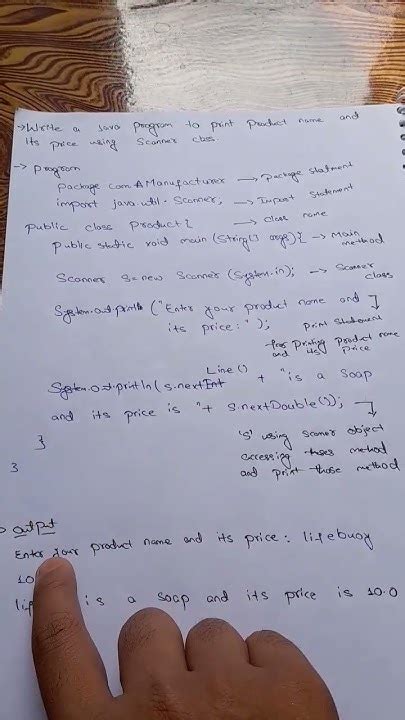 → Write a Java program to print Product name and
its price using Scanner class.
→ program
Package com.AManufacturer → Package statment
import java.util.Scanner; → Import Statement
Public class Product{ → class name
Public static void main(String[] args){ → Main method
Scanner s=new Scanner (System.in); → Scanner class
System.out.println ("Enter your product name and
its price:"); Print Statement
for printing product name
and its price
System.out.println(s.nextLine() + "is a soap
and its price is "+ s.nextDouble());
's' using Scanner object
accessing those method
and print those method
}
}
output
Enter your product name and its price: lifebuoy
10
is a soap and its price is 10.0